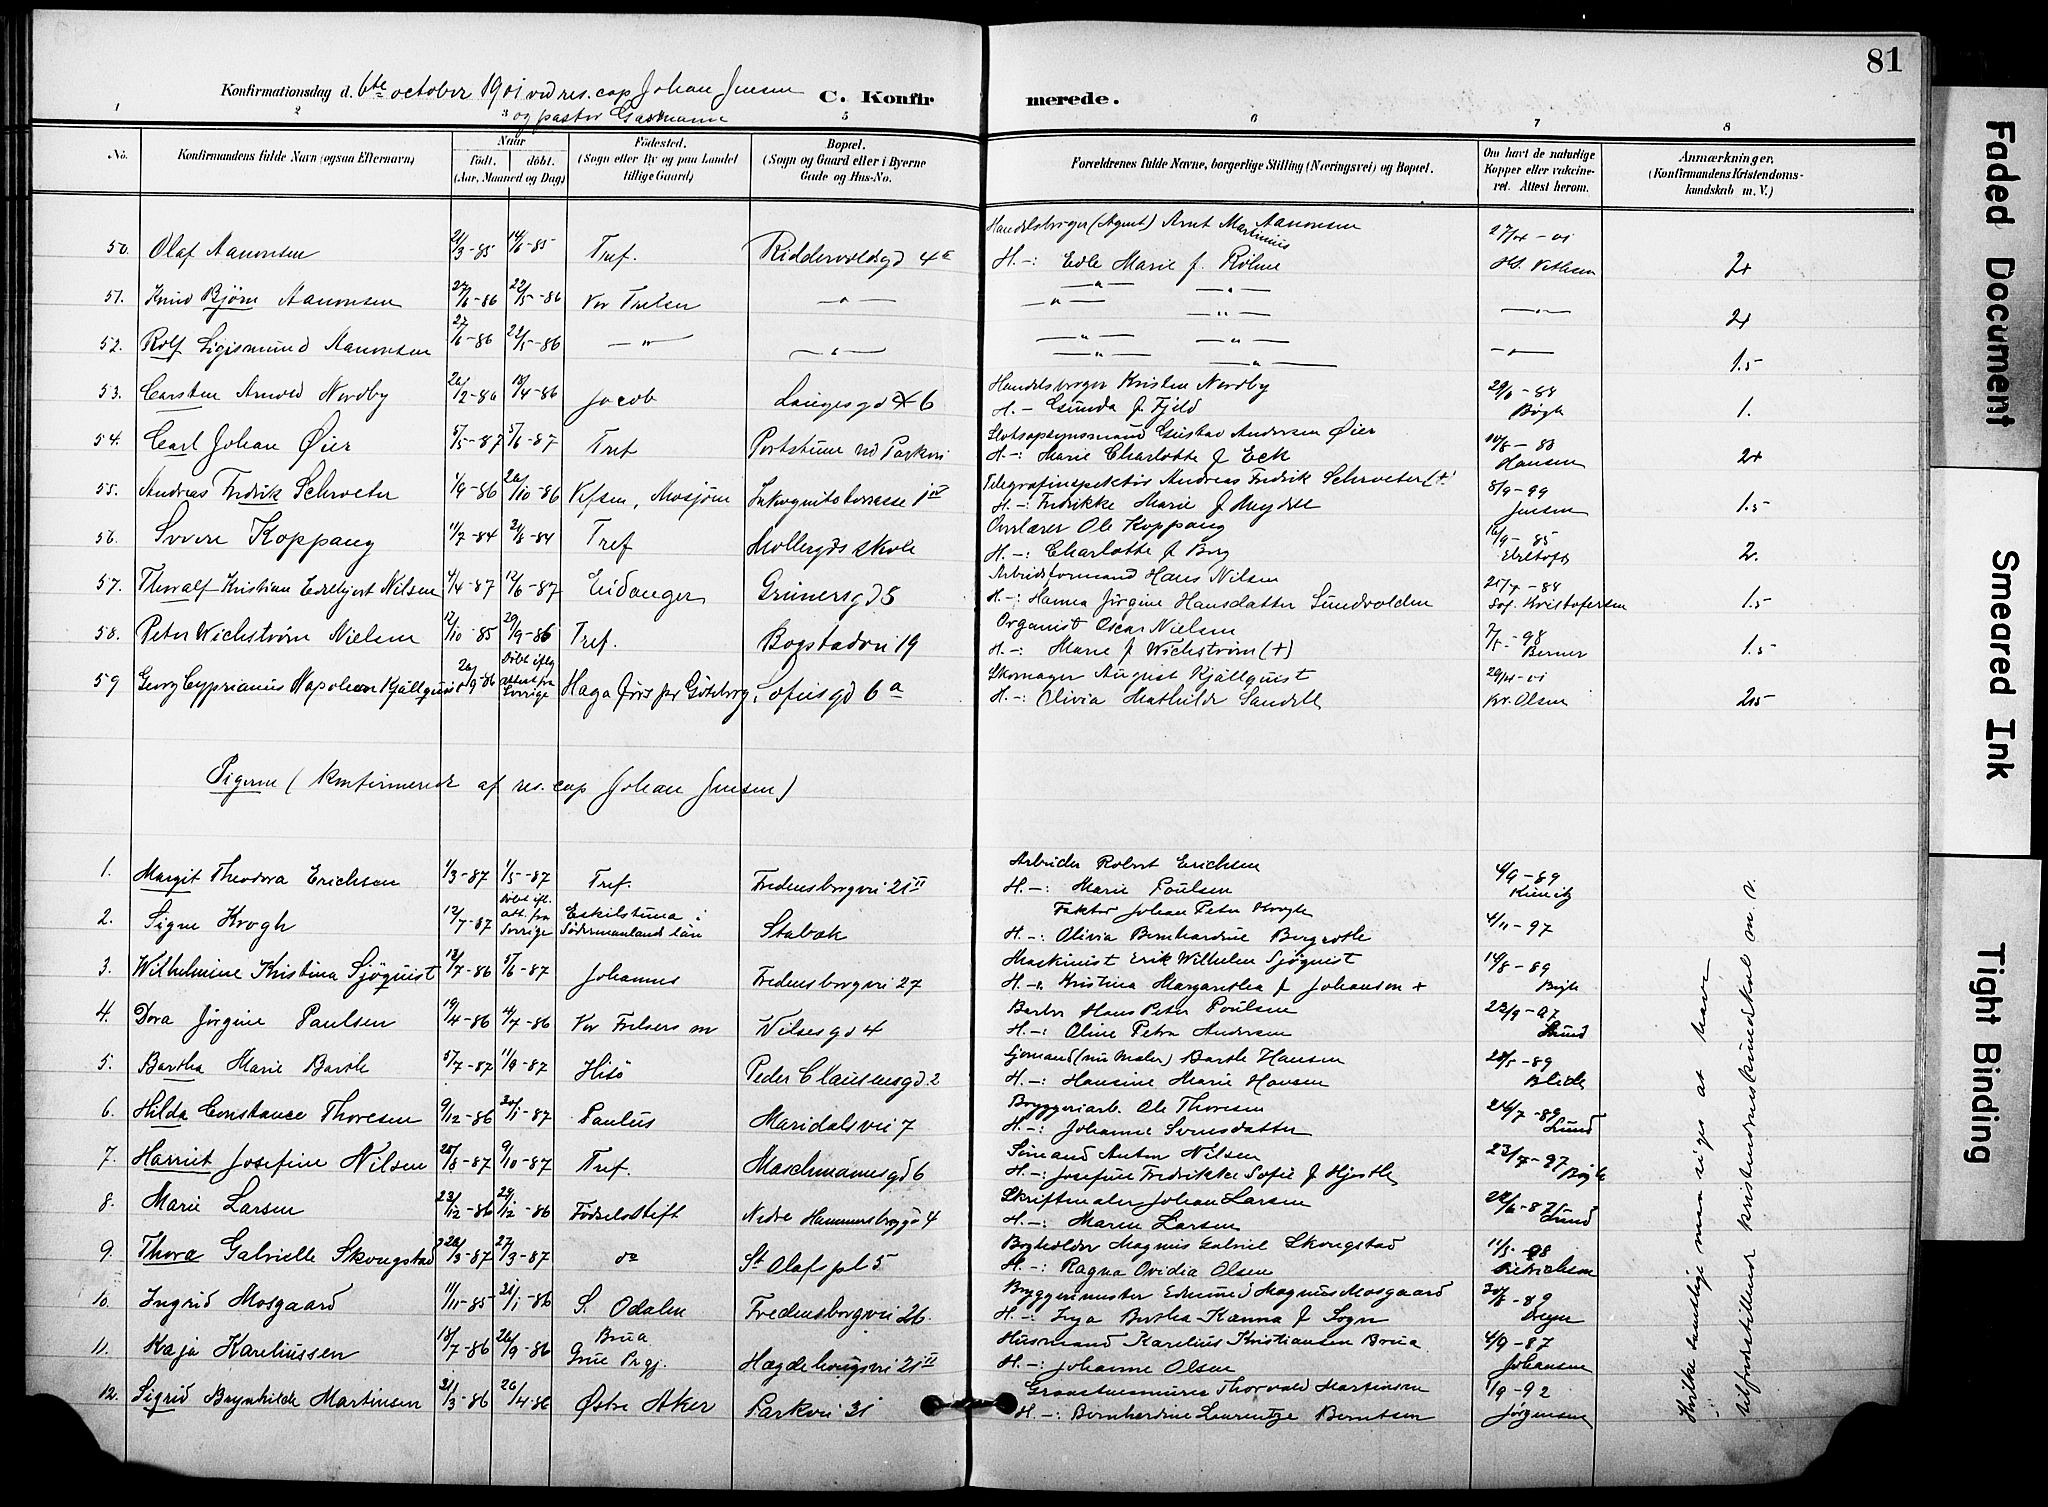 81
Konfirmationsdag d. 6te october 1901 ved res. cap Johan Jensen
og pastor
C. Konfirmerede.
1 2 3 5 6 7 8
No. Konfirmandens fulde Navn (ogsaa Efternavn) Naar födt. döbt. (Aar, Maaned og Dag) Födested. (Sogn eller By og paa Landet tillige Gaard) Bopæl. (Sogn og Gaard eller i Byerne Gade og Hus-No. Forældrenes fulde Navne, borgerlige Stilling (Næringsvei) og Bopæl. Om havt de naturlige Kopper eller vakcineret. Attest herom. Anmærkninger. (Konfirmandens Kristendomskundskab m. V.)
50. Olaf Aanonsen 21/3-85 14/6-85 Tref. Riddervoldsgd 4a Handelsborger (Agent) Arnt Martinius Aanonsen
H.-: Edle Marie f. 27/4-01 2+
51. Knud Bjørn Aanonsen 22/5-86 Vor Frelser -"- -"- -"- 2+
52. Rolf Sigismund Aanonsen 22/5-86 -"- -"- -"- -"- 1.5
53. Carsten Arnold Nordby 26/2-86 18/4-86 Jacob Langesgd 6 Handelsborger Kristen Nordby
H.- Gunda f. Fjeld Bøgh 1.
54. Carl Johan Øier 5/5-87 5/6-87 Tref Portstuen ved Parkvei Slotsopsynsmand Gustav Andersen Øier
H.-: Marie Charlotte f Eck Hansen 2+
55. Andreas Fredrik Schroeter 1/9-86 26/10-86 Vefsen, Mosjøen Inkognitoterrasse 1 IV Telegrafinspektør Andreas Fredrik Schroeter (+)
H.-: Fredrikke Marie f Mydell 8/9-99 Jensen 1.5
56. Sverre Koppang 11/7-84 24/8-84 Tref Møllergds skole Overlærer Ole Koppang
H.-: Charlotte f Borg 16/9-85 2.
57. Thoralf Kristian Edelhjert Nilsen 4/4-87 12/6-87 Eidanger Grünersgd 5 Arbeidsformand Hans Nilsen
H.-: Hanna Jørgine Hansdatter Sundvolden Kristofersen 1.5
58. Peter Wichstrøm Nielsen 12/10-85 29/9-86 Tref. Bogstadvn 19 Organist Oscar Nielsen
H.-: Marie f Wichstrøm (+) 2/5-98 Berner 1.5
59 Georg Cyprianus Napoleon Kjällquist 26/9-86 Döbt iflg attest fra Sverrige Haga Sofiesgd 6a Skomager August Kjällquist
H.-: Olivia Mathilde Sandell 29/4-01 Kr. Olsen 2.5
Pigerne (konfirmerede af res. cap Johan Jensen)
1. Margit Theodora Erichsen 1/3-87 1/5-87 Tref. Fredensborgvei 21 II Arbeider Robert Erichsen
H.-: Marie Poulsen 4/9-89
2. Signe Krogh 12/7-87 Döbt ifl. att. fra Sverrige Eskilstuna i Södermanlands län Stabæk Faktor Johan Peter Krogh
H.-: Olivia Bernhardine Bergrothe 4/11-97
3. Wilhelmine Kristina Sjöquist 18/7-86 5/6-87 Johannes Fredensborgvei 27 Maskinist Erik Wilhelm Sjöquist
H.-: Kristina Margaretha f Johansen + 14/8-89 Bøgh
4. Dora Jörgine Paulsen 19/4-86 4/7-86 Vor Frelsers m Wilsesgd 4 Barber Hans Peter Poulsen
H.-: Oline Petra Andersen Lund
5. Bartha Marie Barth 5/7-87 11/9-87 Hisö Peder Clausensgd. 2 Sjömand (nu Maler) Barth Hansen
H.-: Hansine Marie Hansen 28/5-89 Blich
6. Hilda Constance Thoresen 9/12-86 20/1-87 Paulus Maridalsvei 7 Bryggeriarb. Ole Thoresen
H.-: Johanne Svensdatter 24/7-89 Lund
7. Harriet Josefine Nilsen 28/8-87 9/10-87 Tref. Maschmannsgd 6 Sömand Anton Nilsen
H.-: Josefine Fredrikke Sofie f Hjerthe 23/7-97 Bøgh
8. Marie Larsen 23/12-86 29/12-86 Födselsstift Nedre Hammersborggd 4 Skriftmaler Johan Larsen
H.-: Maren Larsen Lund
9. Thora Gabrielle Skougstad 20/3-87 27/3-87 do St Olafs pl 5 Bogholder Magnus Gabriel Skougstad
H.-: Ragna Ovidia Olsen 11/5-98
10. Ingrid Mosgaard 11/11-85 21/1-86 S. Odalen Fredensborgvei 26. Bryggerimester Edmund Magnus Mosgaard
H.-: Inga Bertha Kanna f Sogn 30/8-89
11. Kaja Kareliussen 18/7-86 26/9-86 Brua Grue Prgj. Hægdehougsvei 21 II Husmand Karelius Kristiansen Brua
H.-: Johanne Olsen 4/9-87 Johansen
12. Sigrid Brynhilde Martinsen 21/3-86 26/4-86 Østre Aker Parkvei 31 Thorvald Martinsen
H.-: Bernhardine Laurentze Berntsen 1/9-92 Jørgensen
Hvilke samtlige maa siges at have
tilfredsstillende kristendomskundskab m. v.
Faded Document
Smeared Ink
Tight Binding